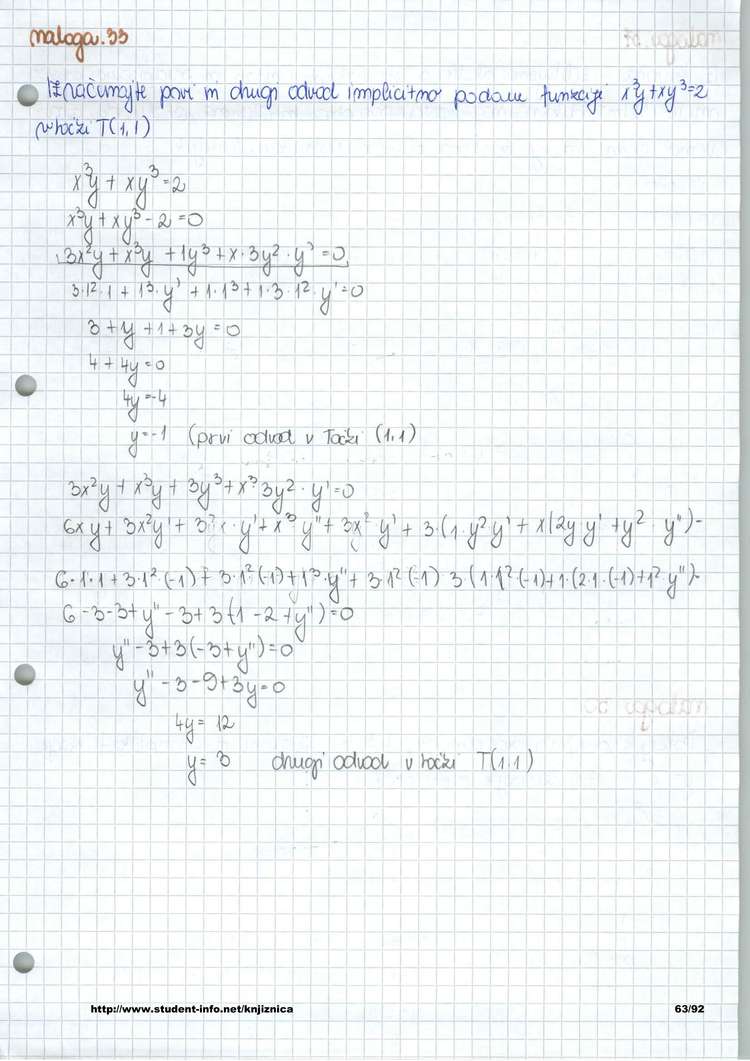 naloga.33
Izračunajte prvi in drugi odvod implicitno podane funkcije x³y+xy³=2
v točki T(1,1)
x³y + xy³ = 2
x³y + xy³ - 2 = 0
3x²y + x³y + 1y³ + x·3y²·y' = 0
3·1²·1 + 1³·y' + 1·1³ + 1·3·1²·y' = 0
3 + y + 1 + 3y = 0
4 + 4y = 0
4y = -4
y = -1 (prvi odvod v točki (1,1)
3x²y + x³y + 3y³ + x³·3y²·y' = 0
6xy + 3x²y' + 3 y' + x³y'' + 3x² y' + 3·(1·y²y' + x(2y y' + y²·y'')-
6·1·1 + 3·1²·(-1) + 3·1²(-1) + 1³·y'' + 3·1²(-1) 3(1·1²·(-1)+1·(2·1·(-1)+1²·y'')-
6 - 3 - 3 + y'' - 3 + 3(-1 - 2 + y'') = 0
y'' - 3 + 3(-3 + y'') = 0
y'' - 3 - 9 + 3y = 0
4y = 12
y = 3 drugi odvod v točki T(1,1)
http://www.student-info.net/knjiznica 63/92